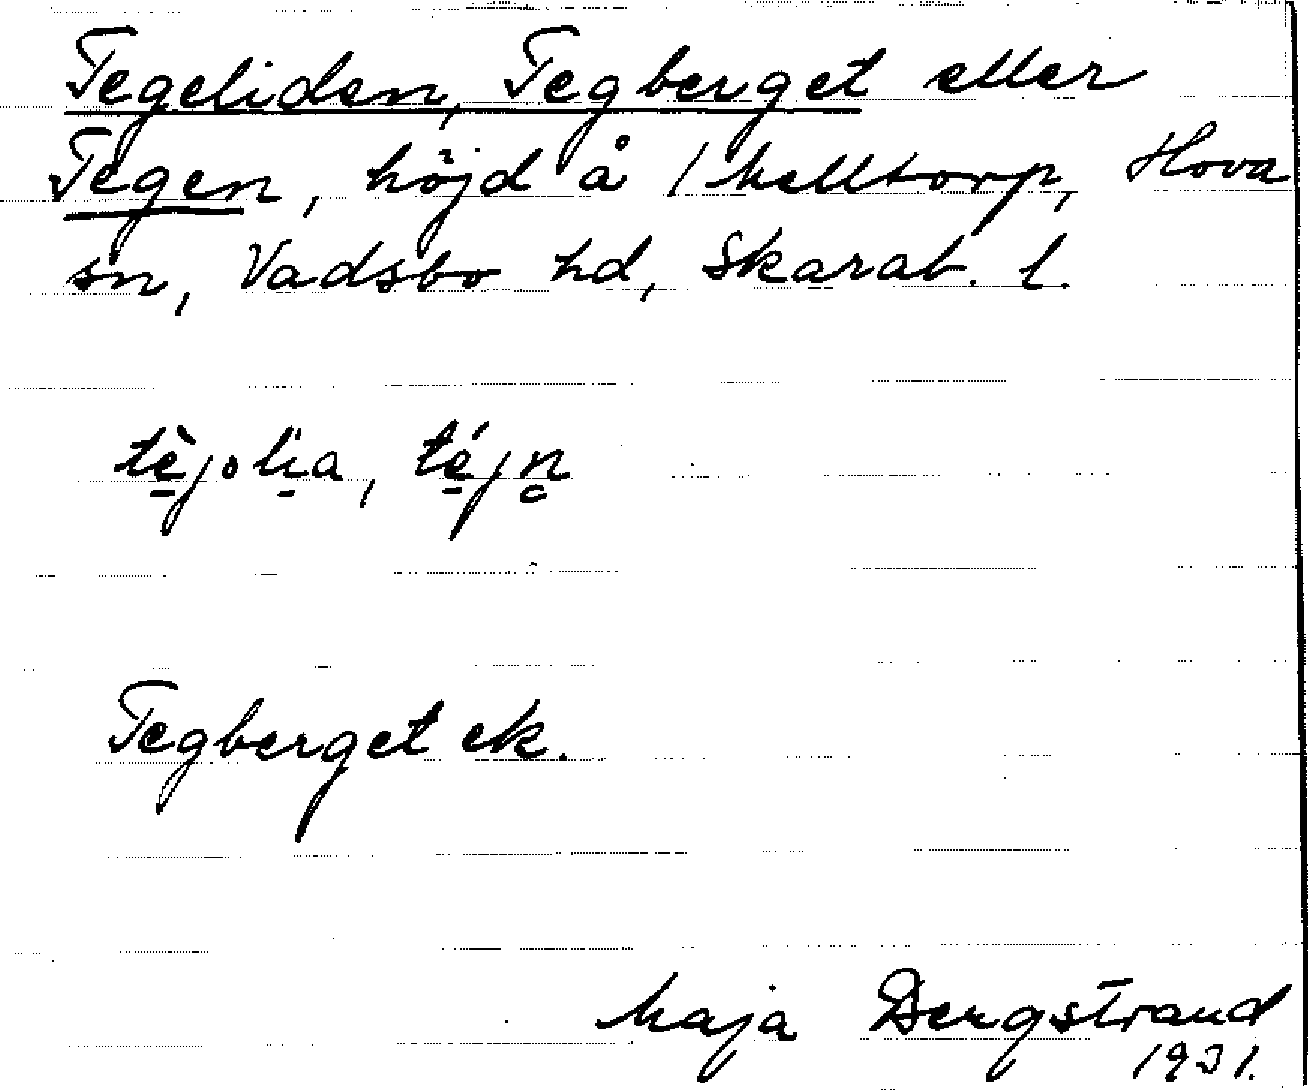 Tegeliden, Tegberget eller
Tegen, höjd å 1 Melltorp, Hova
sn, Vadsbo hd, Skarab. l.
tè̱joli̱a, té̱jn̥
Tegberget ek.
Maja Bergstrand
1931.